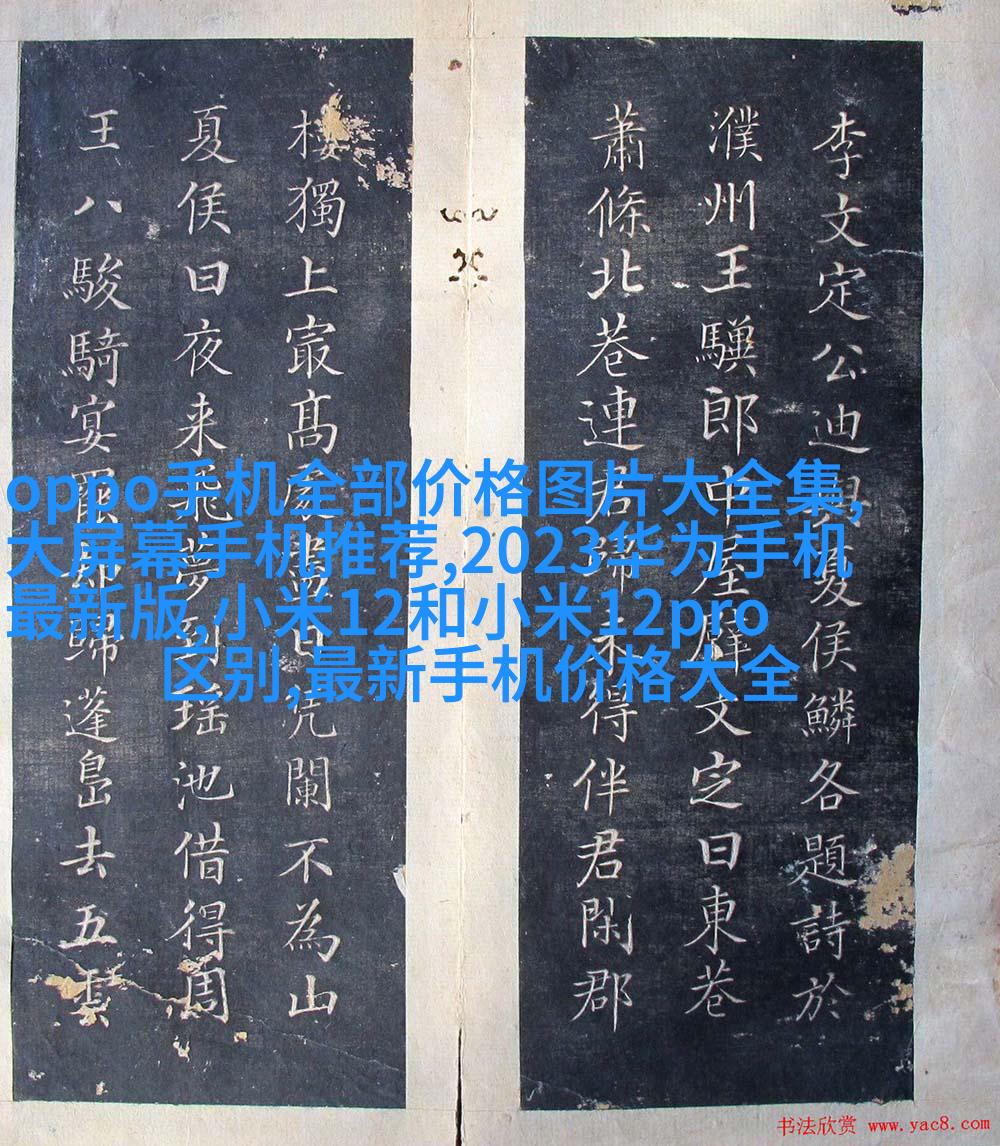 李文定公迪與夏侯鱗各題詩於
濮州王驥郎中屋壁文定曰東巷
蕭條北巷連君歸未得伴君閑郡
樓獨上㝡髙處盡日凭闌不為山
夏侯曰夜来飛夢到瑶池借得周
王八駿騎宴罷却歸蓬島去五雲
oppo手机全部价格图片大全集,
大屏幕手机推荐,2023华为手机
最新版,小米12和小米12pro
区别,最新手机价格大全
书法欣赏 www.yac8.com